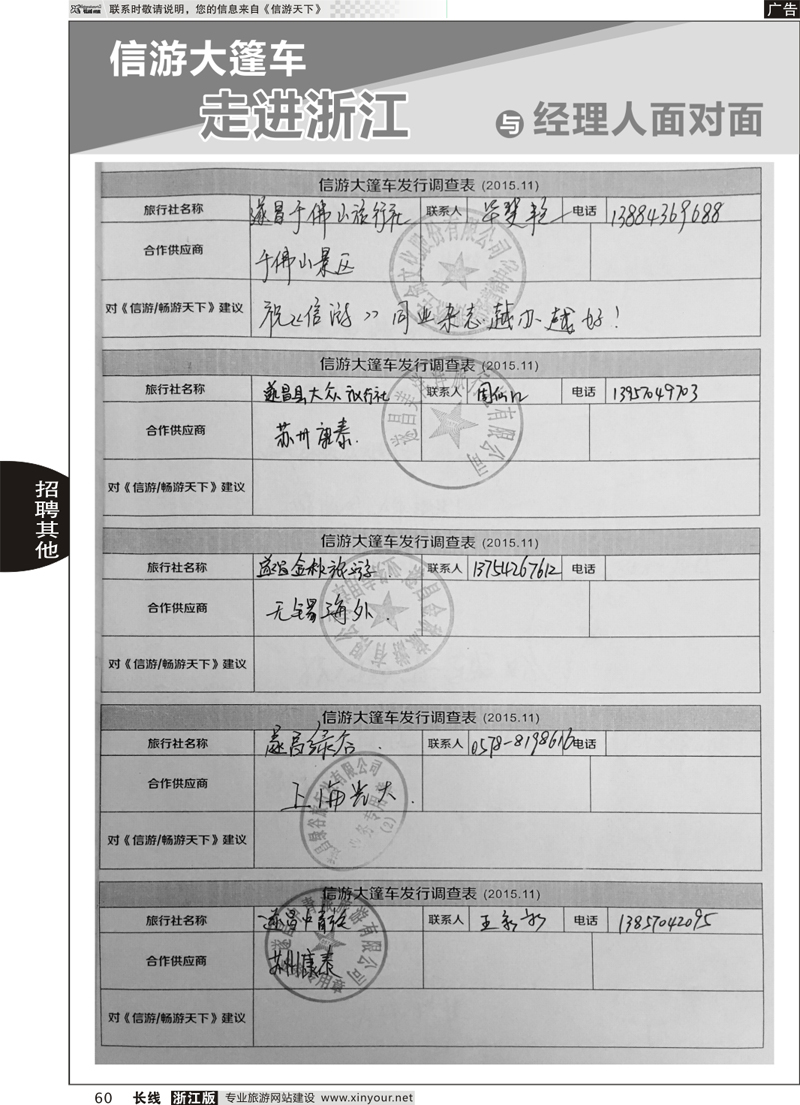 联系时敬请说明，您的信息来自《信游天下》
广告
信游大篷车
走进浙江 与 经理人面对面
信游大篷车发行调查表 (2015.11)
旅行社名称 遂昌千佛山旅行社 联系人 电话 13884369688
合作供应商 千佛山景区
对《信游/畅游天下》建议 祝《信游》同业杂志越办越好！
信游大篷车发行调查表 (2015.11)
旅行社名称 遂昌县大众旅行社 联系人 周仙红 电话 13957049703
合作供应商 苏州康泰.
对《信游/畅游天下》建议
信游大篷车发行调查表 (2015.11)
旅行社名称 遂昌金秋旅游. 联系人 13754267612 电话
合作供应商 无锡海外.
对《信游/畅游天下》建议
信游大篷车发行调查表 (2015.11)
旅行社名称 遂昌绿谷. 联系人 0578-8198616 电话
合作供应商 上海光大.
对《信游/畅游天下》建议
信游大篷车发行调查表 (2015.11)
旅行社名称 遂昌中青旅 联系人 电话 13857042095
合作供应商 苏州康泰
对《信游/畅游天下》建议
招聘其他
60 长线 浙江版 专业旅游网站建设 www.xinyour.net